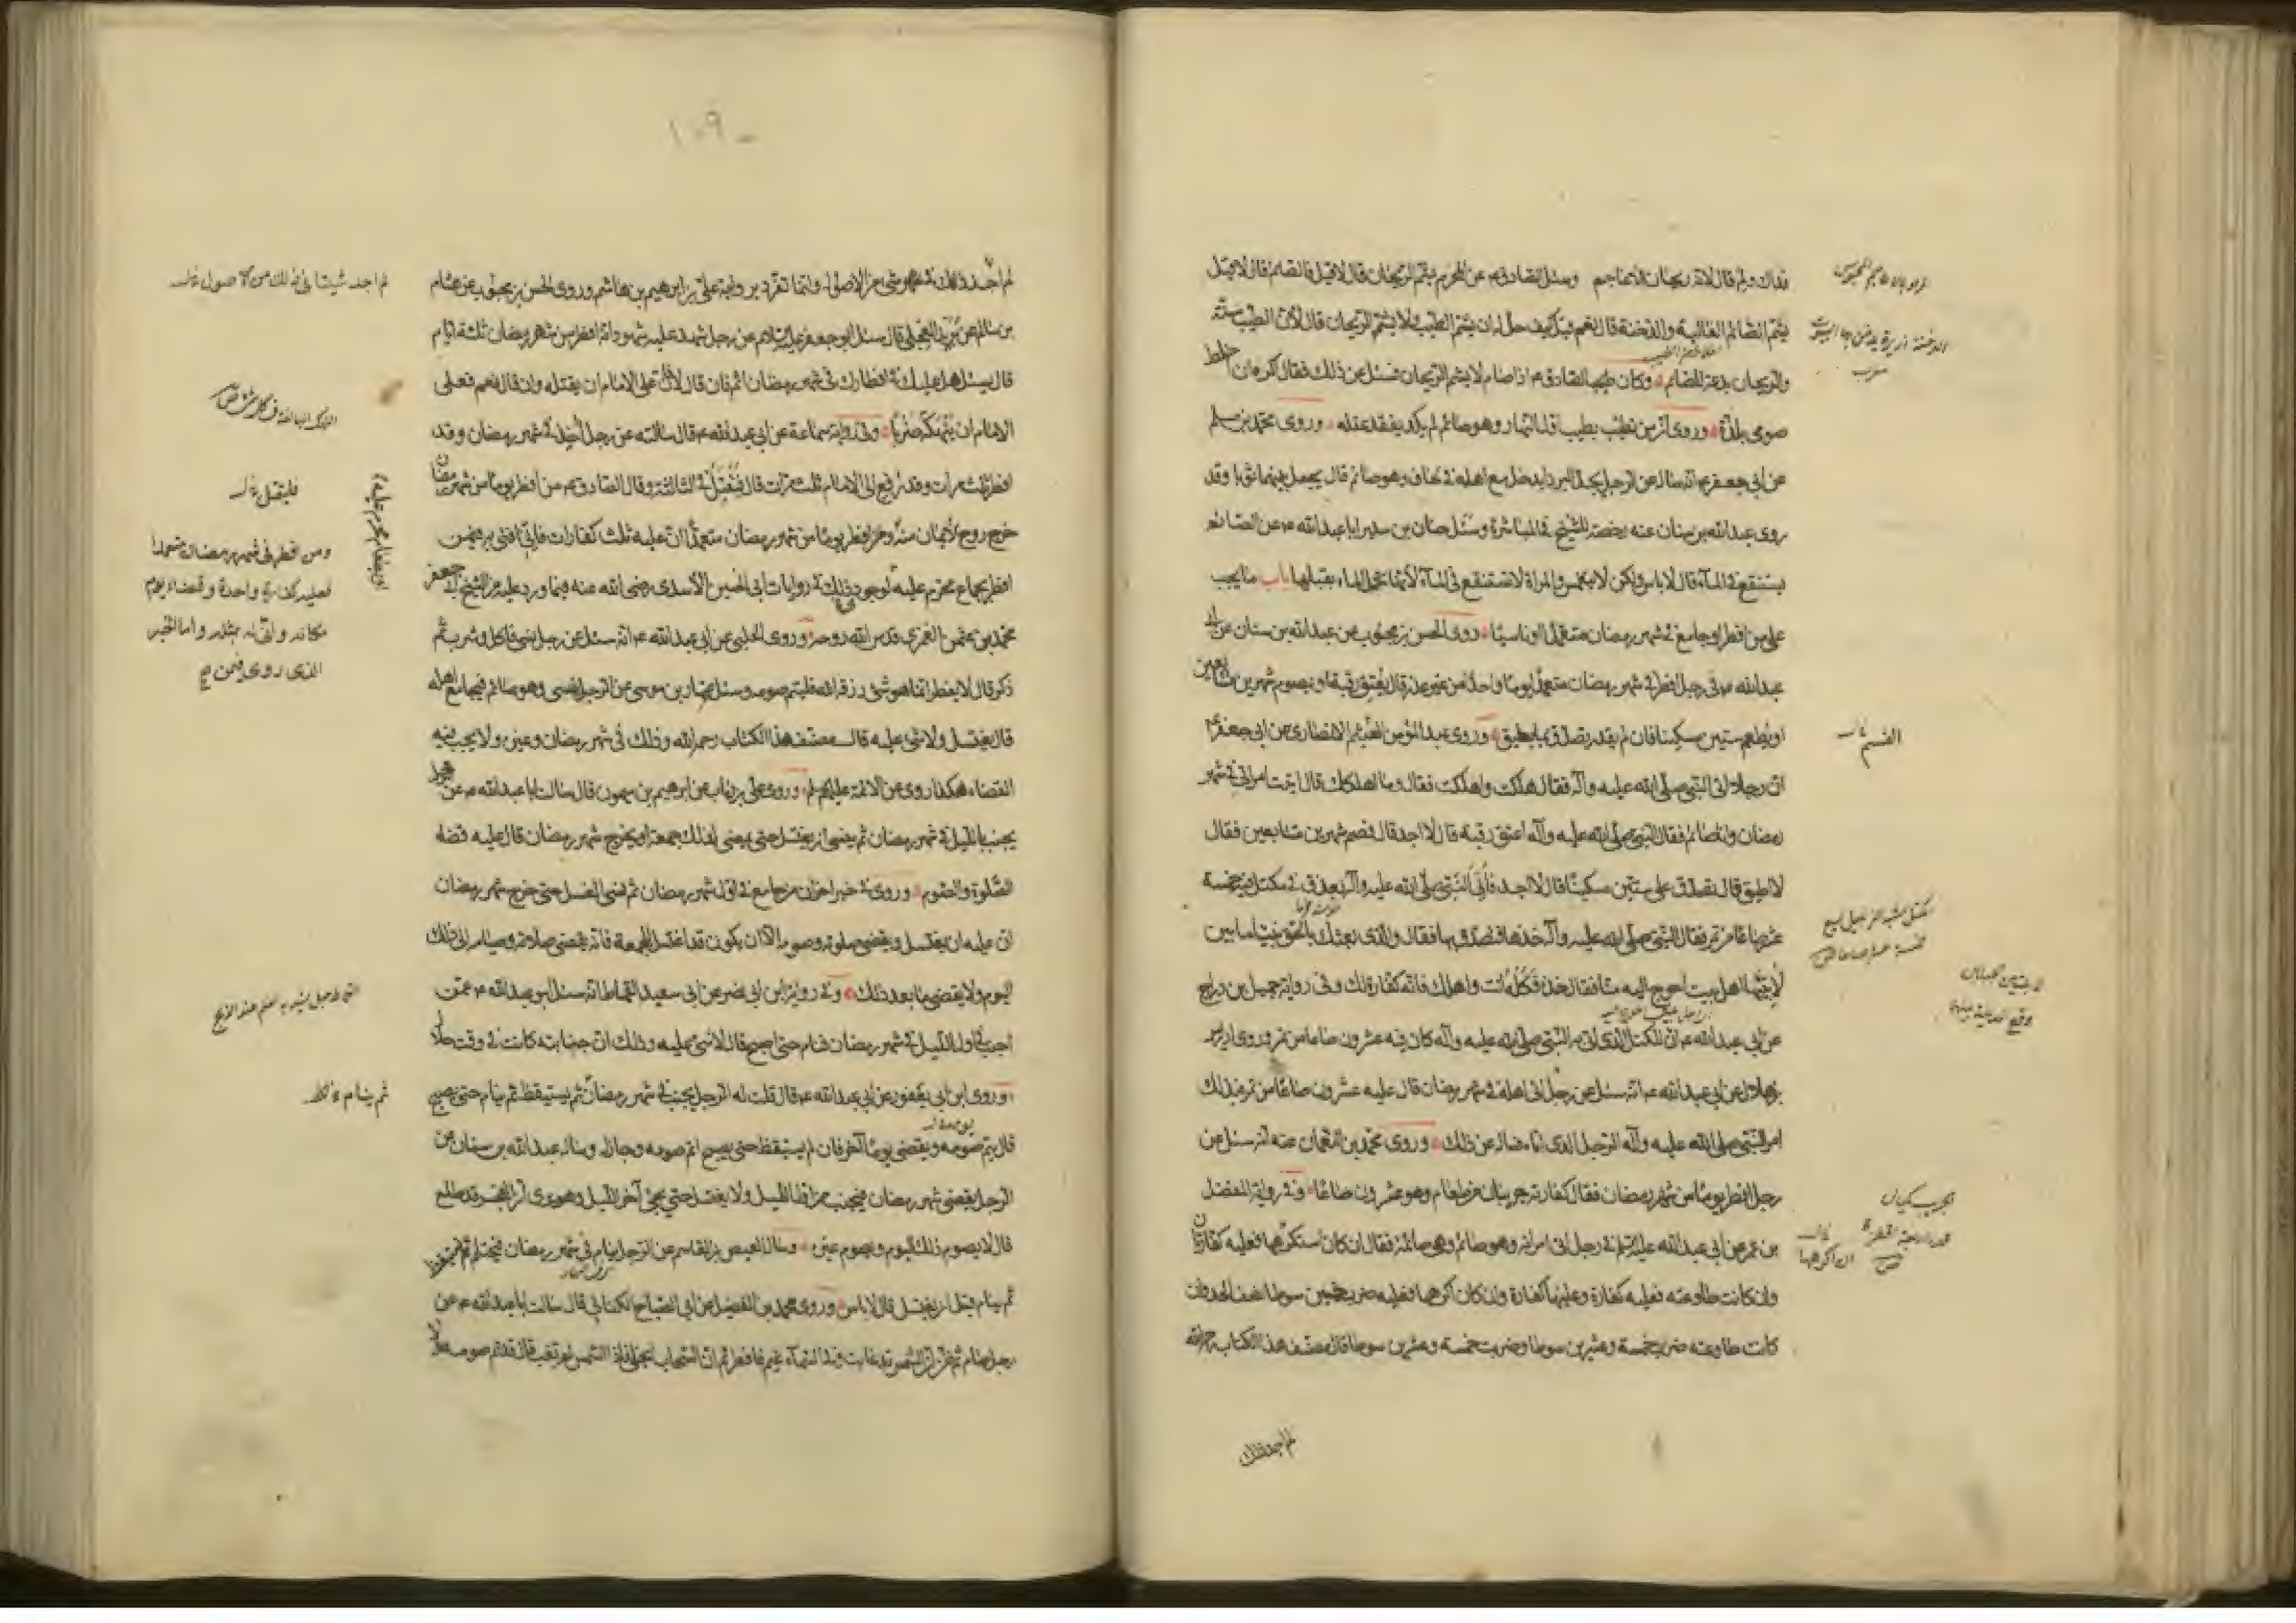 فداك ولم قال لانه ريحان الاعاجم وسئل الصادق ع عن المحرم يشم الريحان قال لا قيل فالصائم قال لا قيل
يشم الصائم الغالية والدخنة قال نعم قيل كيف حل له ان يشم الطيب ولا يشم الريحان قال لان الطيب سنة
والريحان بدعة للصائم وكان الصادق ع اذا صام لا يشم الريحان فسئل عن ذلك فقال اكره ان اخلط
صومى بلذة وروى ان من تطيب بطيب اول النهار وهو صائم لم يكد يفقد عقله وروى محمد بن مسلم
عن ابى جعفر ع انه سأله عن الرجل يجد البرد ايدخل مع اهله فى لحاف وهو صائم قال يجعل بينهما ثوبا وقد
روى عبد الله بن سنان عنه رخصة للشيخ فى المباشرة وسئل حنان بن سدير ابا عبد الله ع عن الصائم
يستنقع فى الماء قال لا باس ولكن لا ينغمس والمراة لا تستنقع فى الماء لانها تحمل الماء بقبلها باب ما يجب
على من افطر او جامع فى شهر رمضان متعمدا او ناسيا روى الحسن بن محبوب عن عبد الله بن سنان عن ابى
عبد الله ع فى رجل افطر فى شهر رمضان متعمدا يوما واحدا من غير عذر قال يعتق رقبة او يصوم شهرين متتابعين
او يطعم ستين مسكينا فان لم يقدر تصدق بما يطيق وروى عبد المؤمن بن القسم الانصارى عن ابى جعفر ع
ان رجلا اتى النبى صلى الله عليه وآله فقال هلكت واهلكت فقال وما اهلكك قال اتيت امراتى فى شهر
رمضان وانا صائم فقال النبى صلى الله عليه وآله اعتق رقبة قال لا اجد قال فصم شهرين متتابعين فقال
لا اطيق قال تصدق على ستين مسكينا قال لا اجد فاتى النبى صلى الله عليه وآله بعذق فى مكتل فيه خمسة
عشر صاعا من تمر فقال النبى صلى الله عليه وآله خذها فتصدق بها فقال والذى بعثك بالحق نبيا ما بين
لابتيها اهل بيت احوج اليه منا فقال خذه فكله انت واهلك فانه كفارة لك وفى رواية جميل بن دراج
عن ابى عبد الله ع ان المكتل الذى اتى به النبى صلى الله عليه وآله كان فيه عشرون صاعا من تمر وروى ادريس
بن هلال عن ابى عبد الله ع انه سئل عن رجل اتى اهله فى شهر رمضان قال عليه عشرون صاعا من تمر فبذلك
امر النبى صلى الله عليه وآله الرجل الذى اتاه فساله عن ذلك وروى محمد بن النعمان عنه انه سئل عن
رجل افطر يوما من شهر رمضان فقال كفارته جريبان من طعام وهو عشرون صاعا وفى رواية المفضل
بن عمر عن ابى عبد الله عليه السلم فى رجل اتى امراته وهو صائم وهى صائمة فقال ان كان استكرهها فعليه كفارتان
وان كانت طاوعته فعليه كفارة وعليها كفارة وان كان اكرهها فعليه ضرب خمسين سوطا نصف الحد وان
كانت طاوعته ضرب خمسة وعشرين سوطا وضربت خمسة وعشرين سوطا قال مصنف هذا الكتاب رحمه الله
القسم
ان اكرهها
لم اجد ذلك
١٠٩
لم اجد ذلك فى شىء من الاصول وانما تفرد بروايته على بن ابرهيم بن هاشم وروى الحسن بن محبوب عن هشام
بن سالم عن بريد العجلى قال سئل ابو جعفر عليه السلام عن رجل شهد عليه شهود انه افطر من شهر رمضان ثلثة ايام
قال يسئل هل عليك فى افطارك فى شهر رمضان اثم فان قال لا فان على الامام ان يقتله وان قال نعم فعلى
الامام ان ينهكه ضربا وفى رواية سماعة عن ابى عبد الله ع قال سالته عن رجل اخذ فى شهر رمضان وقد
افطر ثلث مرات وقد رفع الى الامام ثلث مرات قال فيقتل فى الثالثة وقال الصادق ع من افطر يوما من شهر رمضان
خرج روح الايمان منه ومن افطر يوما من شهر رمضان متعمدا ان عليه ثلث كفارات فانى افتى به فيمن
افطر بجماع محرم عليه لوجود ذلك فى روايات ابى الحسين الاسدى رضى الله عنه فيما ورد عليه من الشيخ ابى جعفر
محمد بن عثمن العمرى قدس الله روحه وروى الحلبى عن ابى عبد الله ع انه سئل عن رجل نسى فاكل وشرب ثم
ذكر قال لا يفطر انما هو شىء رزقه الله فليتم صومه وسئل عمار بن موسى عن الرجل ينسى وهو صائم فيجامع اهله
قال يغتسل ولا شىء عليه قال مصنف هذا الكتاب رحمه الله وذلك فى شهر رمضان وغيره ولا يجب فيه
القضاء هكذا روى عن الائمة عليهم السلم وروى على بن رئاب عن ابرهيم بن ميمون قال سالت ابا عبد الله ع عن الرجل
يجنب بالليل فى شهر رمضان ثم ينسى ان يغتسل حتى يمضى لذلك جمعة او يخرج شهر رمضان قال عليه قضاء
الصلوة والصوم وروى فى خبر اخر ان من جامع فى اول شهر رمضان ثم نسى الغسل حتى خرج شهر رمضان
ان عليه ان يغتسل ويقضى صلوته وصومه الا ان يكون قد اغتسل للجمعة فانه يقضى صلاته وصيامه الى ذلك
اليوم ولا يقضى ما بعد ذلك وفى رواية ابن ابى نصر عن ابى سعيد القماط انه سئل ابو عبد الله ع عمن
اجنب فى اول الليل فى شهر رمضان فنام حتى اصبح قال لا شىء عليه وذلك ان جنابته كانت فى وقت حلال
وروى ابن ابى يعفور عن ابى عبد الله ع قال قلت له الرجل يجنب فى شهر رمضان ثم يستيقظ ثم ينام حتى يصبح
قال يتم صومه ويقضى يوما آخر فان لم يستيقظ حتى يصبح اتم صومه وجاز له وساله عبد الله بن سنان عن
الرجل يقضى شهر رمضان فيجنب من اول الليل ولا يغتسل حتى يجئ آخر الليل وهو يرى ان الفجر قد طلع
قال لا يصوم ذلك اليوم ويصوم غيره وسال العيص بن القاسم عن الرجل ينام فى شهر رمضان فيحتلم ثم يستيقظ
ثم ينام قبل ان يغتسل قال لا باس وروى محمد بن الفضيل عن ابى الصباح الكنانى قال سالت ابا عبد الله ع عن
رجل صام ثم ظن ان الشمس قد غابت وفى السماء غيم فافطر ثم ان السحاب انجلى فاذا الشمس لم تغب قال قد تم صومه ولا
لم اجد شيئا فى ذلك من الاصول
فليقتل
ومن افطر فى شهر رمضان متعمدا
فعليه كفارة واحدة وقضاء يوم
مكانه وانى له بمثله واما الخبر
الذى روى فيمن
ثم ينام